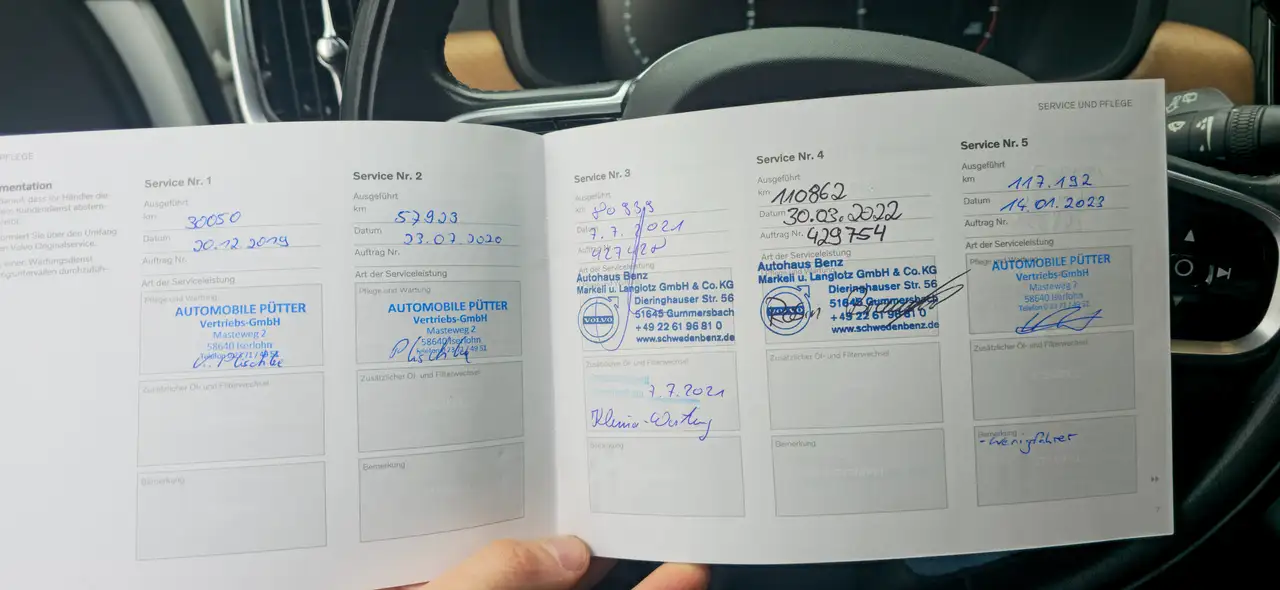 PFLEGE
mentation
Service Nr. 1
Ausgeführt
km 30050
Datum 20.12.2019
Auftrag Nr.
Art der Serviceleistung
Pflege und Wartung
AUTOMOBILE PÜTTER
Vertriebs-GmbH
Masteweg 2
58640 Iserlohn
Zusätzlicher Öl- und Filterwechsel
Bemerkung
Service Nr. 2
Ausgeführt
km 57923
Datum 23.07.2020
Auftrag Nr.
Art der Serviceleistung
Pflege und Wartung
AUTOMOBILE PÜTTER
Vertriebs-GmbH
Masteweg 2
58640 Iserlohn
Zusätzlicher Öl- und Filterwechsel
Bemerkung
SERVICE UND PFLEGE
Service Nr. 3
Ausgeführt
km
Datum 7.7.2021
Auftrag Nr.
Art der Serviceleistung
Autohaus Benz
Markeli u. Langlotz GmbH & Co. KG
Dieringhauser Str. 56
VOLVO
51645 Gummersbach
+49 22 61 96 81 0
www.schwedenbenz.de
Zusätzlicher Öl- und Filterwechsel
7.7.2021
Klima-Wartung
Service Nr. 4
Ausgeführt
km 110862
Datum 30.03.2022
Auftrag Nr. 429754
Autohaus Benz
Markeli u. Langlotz GmbH & Co. KG
Dieringhauser Str. 56
51645 Gummersbach
+49 22 61 96 81 0
www.schwedenbenz.de
Zusätzlicher Öl- und Filterwechsel
Bemerkung
Service Nr. 5
Ausgeführt
km 117.192
Datum 14.01.2023
Auftrag Nr.
Art der Serviceleistung
Pflege und Wartung
AUTOMOBILE PÜTTER
Vertriebs-GmbH
Masteweg 2
58640 Iserlohn
Zusätzlicher Öl- und Filterwechsel
Bemerkung
- Wenigfahrer
7